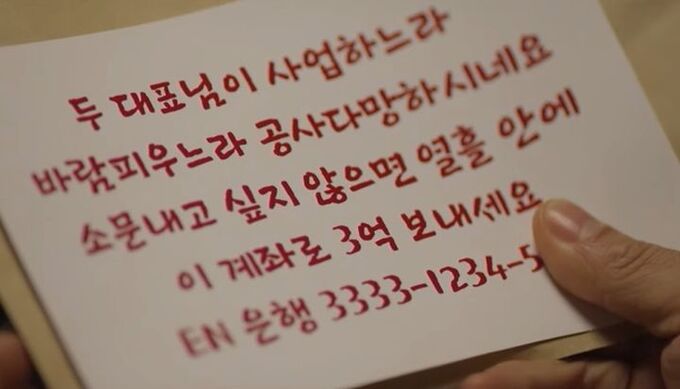 두 대표님이 사업하느라
바람피우느라 공사다망하시네요
소문내고 싶지 않으면 열흘 안에
이 계좌로 3억 보내세요
EN 은행 3333-1234-5